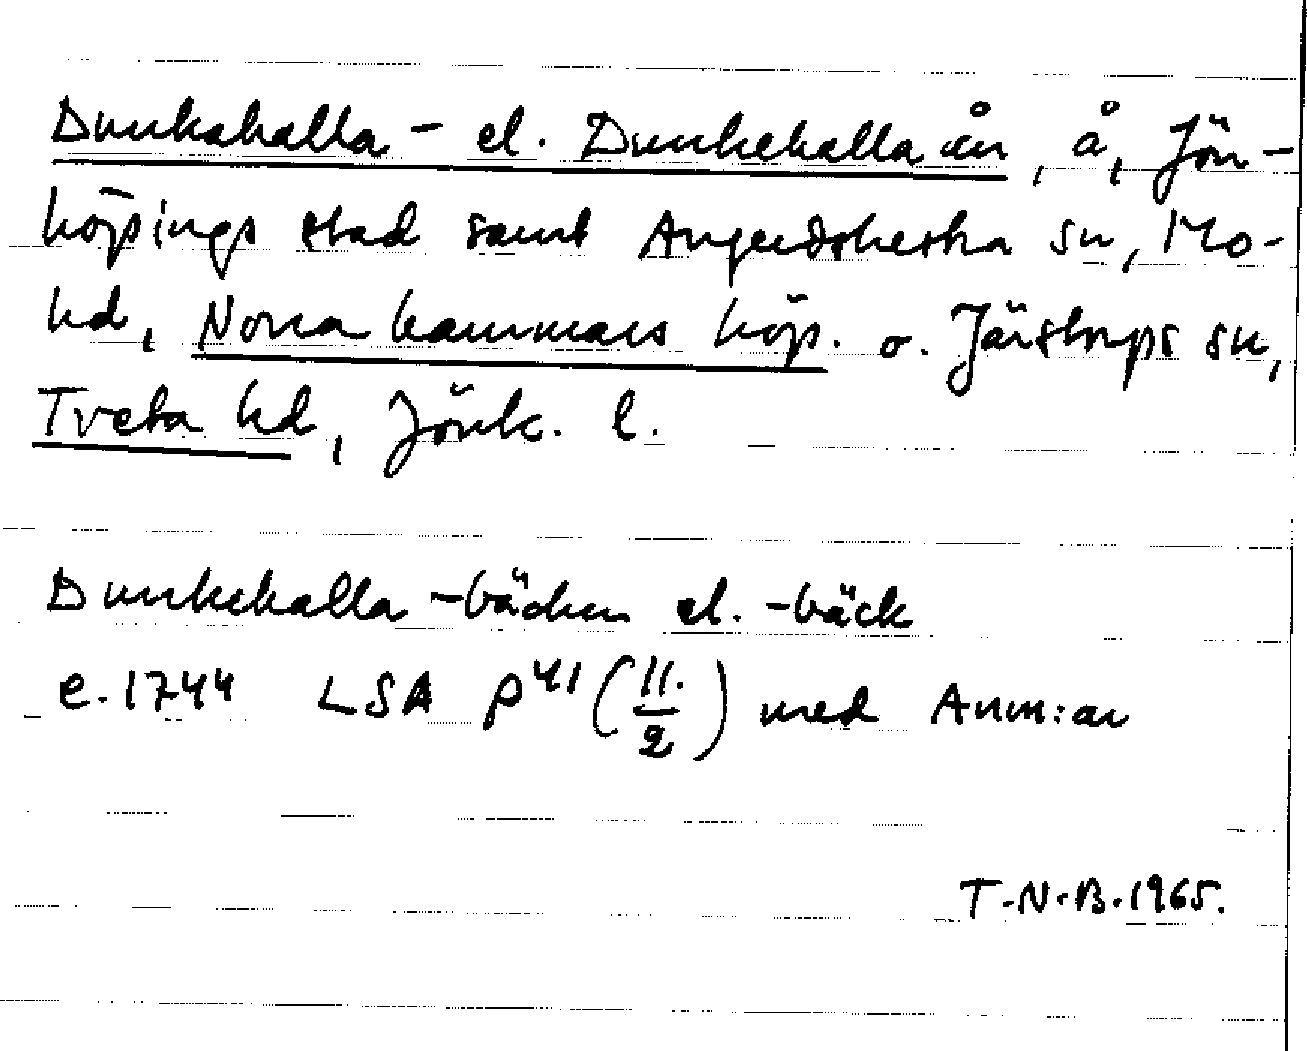 Dunkahalla- el. Dunkehallaån, å, Jön-
köpings stad samt Angerdshestra sn, Mo-
hd, Norra hammars köp. o. Järstorps sn,
Tveta hd, Jönk. l.
Dunkehalla -bäcken el. -bäck
e. 1744 LSA P⁴¹ (11./2) med Anm:ar
T.N.B. 1965.